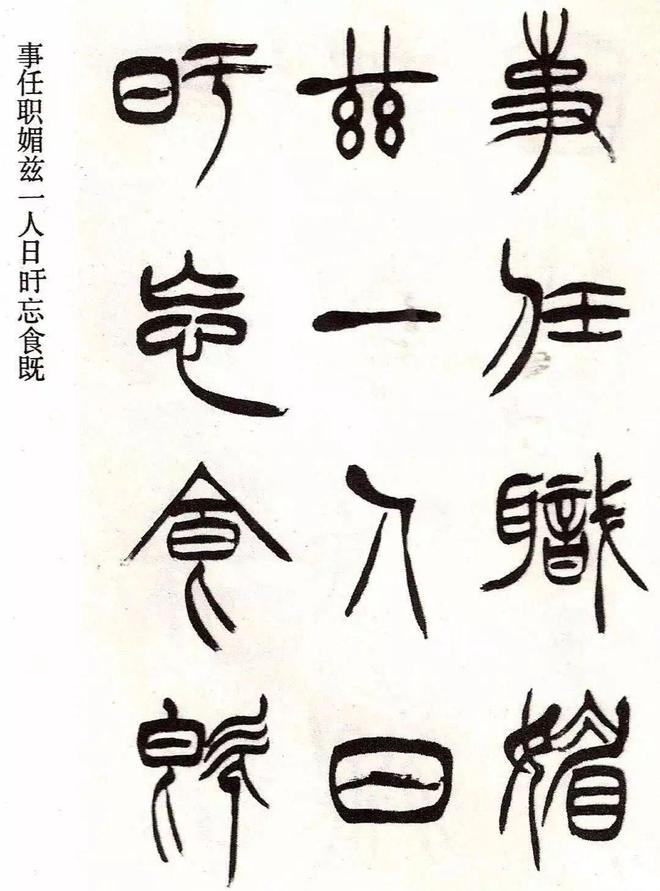 事任職媚
兹一人日
旰忘食既
事任职媚兹一人日旰忘食既